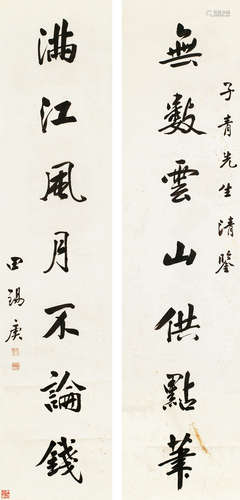 子青先生清鑒
無數雲山供點筆
滿江風月不論錢
田錫庚